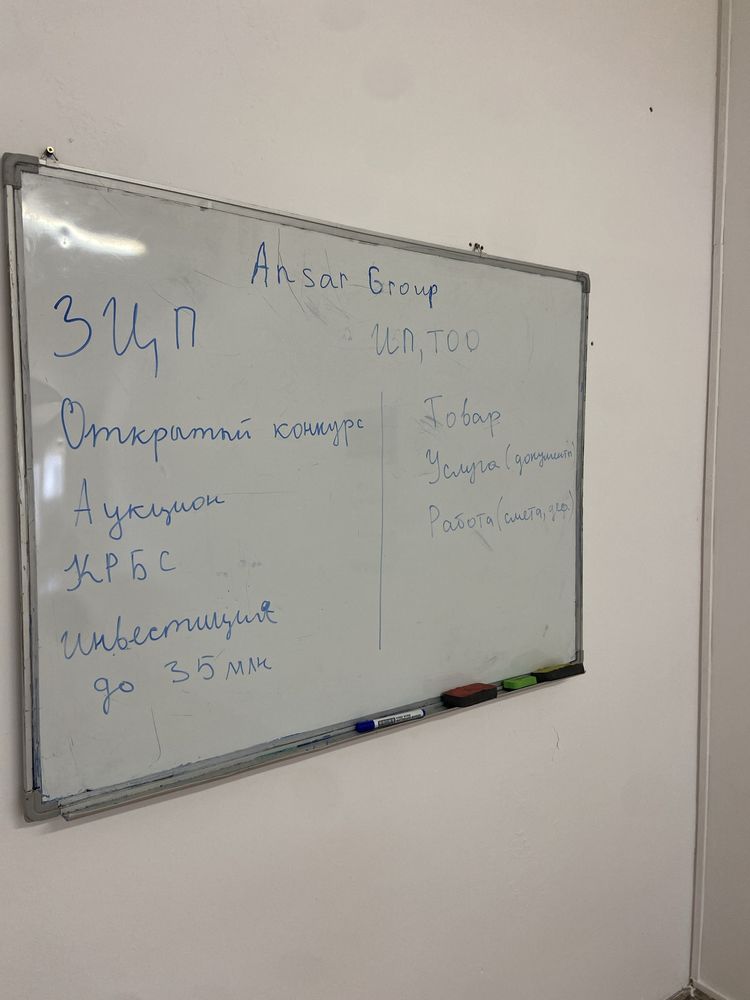 Ansar Group
ЗЦП
ИП, ТОО
Открытый конкурс
Аукцион
КРБС
инвестиция
до 35 млн
Товар
Услуга (документы)
Работа (смета, деф)